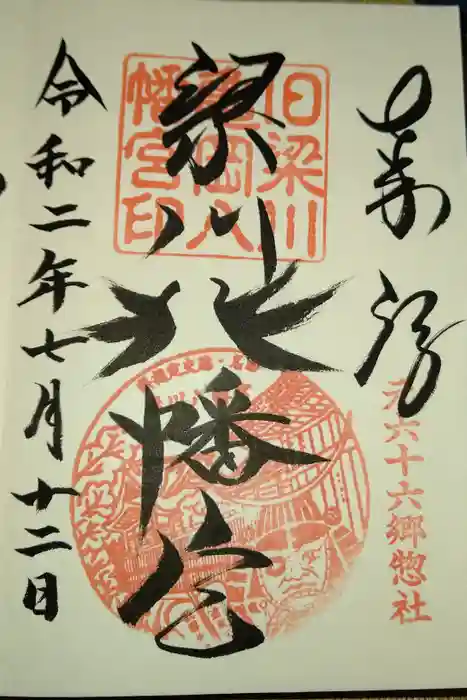 奉拝
元六十六郷惣社
旧梁川
亀岡八
幡宮印
梁川八幡宮
令和二年七月十二日